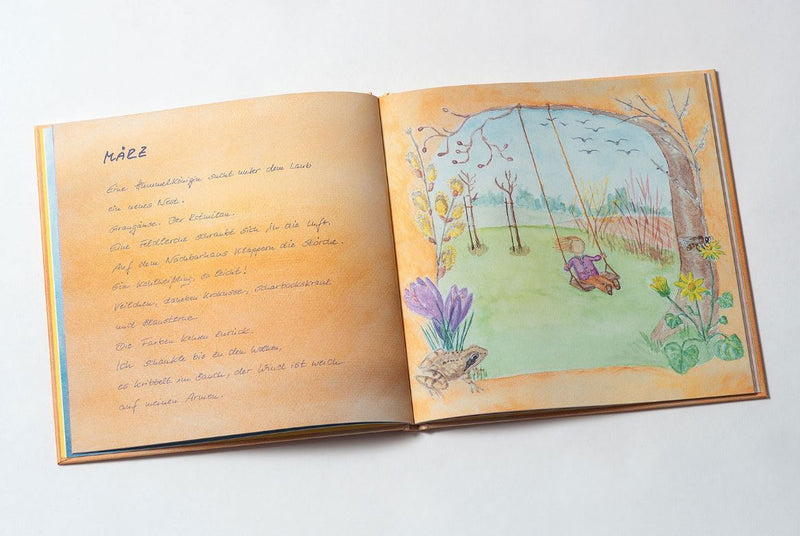 MÄRZ
Eine Hummelkönigin sucht unter dem Laub
ein neues Nest.
Graugänse. Der Rotmilan.
Eine Feldlerche schraubt sich in die Luft.
Auf dem Nachbarhaus klappern die Störche.
Ein Kohlweißling, so leicht!
Veilchen, daneben Krokusse, Scharbockskraut
und Blausterne.
Die Farben kehren zurück.
Ich schaukle bis zu den Wolken,
es kribbelt im Bauch, der Wind ist weich
auf meinen Armen.